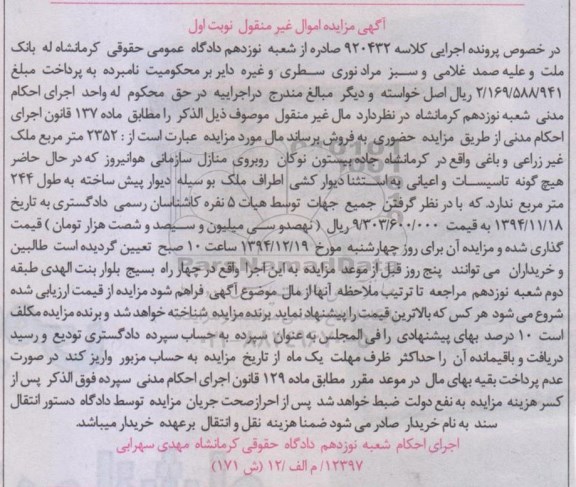 آگهی مزایده اموال غیر منقول نوبت اول
در خصوص پرونده اجرایی کلاسه ۹۲۰۴۳۲ صادره از شعبه نوزدهم دادگاه عمومی حقوقی کرمانشاه له بانک
ملت و علیه صمد غلامی و سبز مراد نوری سطری و غیره دایر بر محکومیت نامبرده به پرداخت مبلغ
۲/۱۶۹/۵۸۸/۹۴۱ ریال اصل خواسته و دیگر مبالغ مندرج در اجراییه در حق محکوم له واحد اجرای احکام
مدنی شعبه نوزدهم کرمانشاه در نظر دارد مال غیر منقول موصوف ذیل الذکر را مطابق ماده ۱۳۷ قانون اجرای
احکام مدنی از طریق مزایده حضوری به فروش برساند مال مورد مزایده عبارت است از : ۲۳۵۲ متر مربع ملک
غیر زراعی و باغی واقع در کرمانشاه جاده بیستون نوکان روبروی منازل سازمانی هوانیروز که در حال حاضر
هیچ گونه تاسیسات و اعیانی به استثنا دیوار کشی اطراف ملک بو سیله دیوار پیش ساخته به طول ۲۴۴
متر مربع ندارد. که با در نظر گرفتن جمیع جهات توسط هیات ۵ نفره کاشناسان رسمی دادگستری به تاریخ
۱۳۹۴/۱۱/۱۸ به قیمت ۹/۳۰۳/۶۰۰/۰۰۰ ریال ( نهصدو سی میلیون و سیصد و شصت هزار تومان ) قیمت
گذاری شده و مزایده آن برای روز چهارشنبه مورخ ۱۳۹۴/۱۲/۱۹ ساعت ۱۰ صبح تعیین گردیده است طالبین
و خریداران می توانند پنج روز قبل از موعد مزایده به این اجرا واقع در چهار راه بسیج بلوار بنت الهدی طبقه
دوم شعبه نوزدهم مراجعه تا ترتیب ملاحظه آنها از مال موضوع آگهی فراهم شود مزایده از قیمت ارزیابی شده
شروع می شود هر کس که بالاترین قیمت را پیشنهاد نماید برنده مزایده شناخته خواهد شد و برنده مزایده مکلف
است ۱۰ درصد بهای پیشنهادی را فی المجلس به عنوان سپرده به حساب سپرده دادگستری تودیع و رسید
دریافت و باقیمانده آن را حداکثر ظرف مهلت یک ماه از تاریخ مزایده به حساب مزبور واریز کند در صورت
عدم پرداخت بقیه بهای مال در موعد مقرر مطابق ماده ۱۲۹ قانون اجرای احکام مدنی سپرده فوق الذکر پس از
کسر هزینه مزایده به نفع دولت ضبط خواهد شد پس از احراز صحت جریان مزایده توسط دادگاه دستور انتقال
سند به نام خریدار صادر می شود ضمنا هزینه نقل و انتقال بر عهده خریدار میباشد.
اجرای احکام شعبه نوزدهم دادگاه حقوقی کرمانشاه مهدی سهرابی
۱۲۳۹۷/ م الف /۱۲ (ش ۱۷۱)